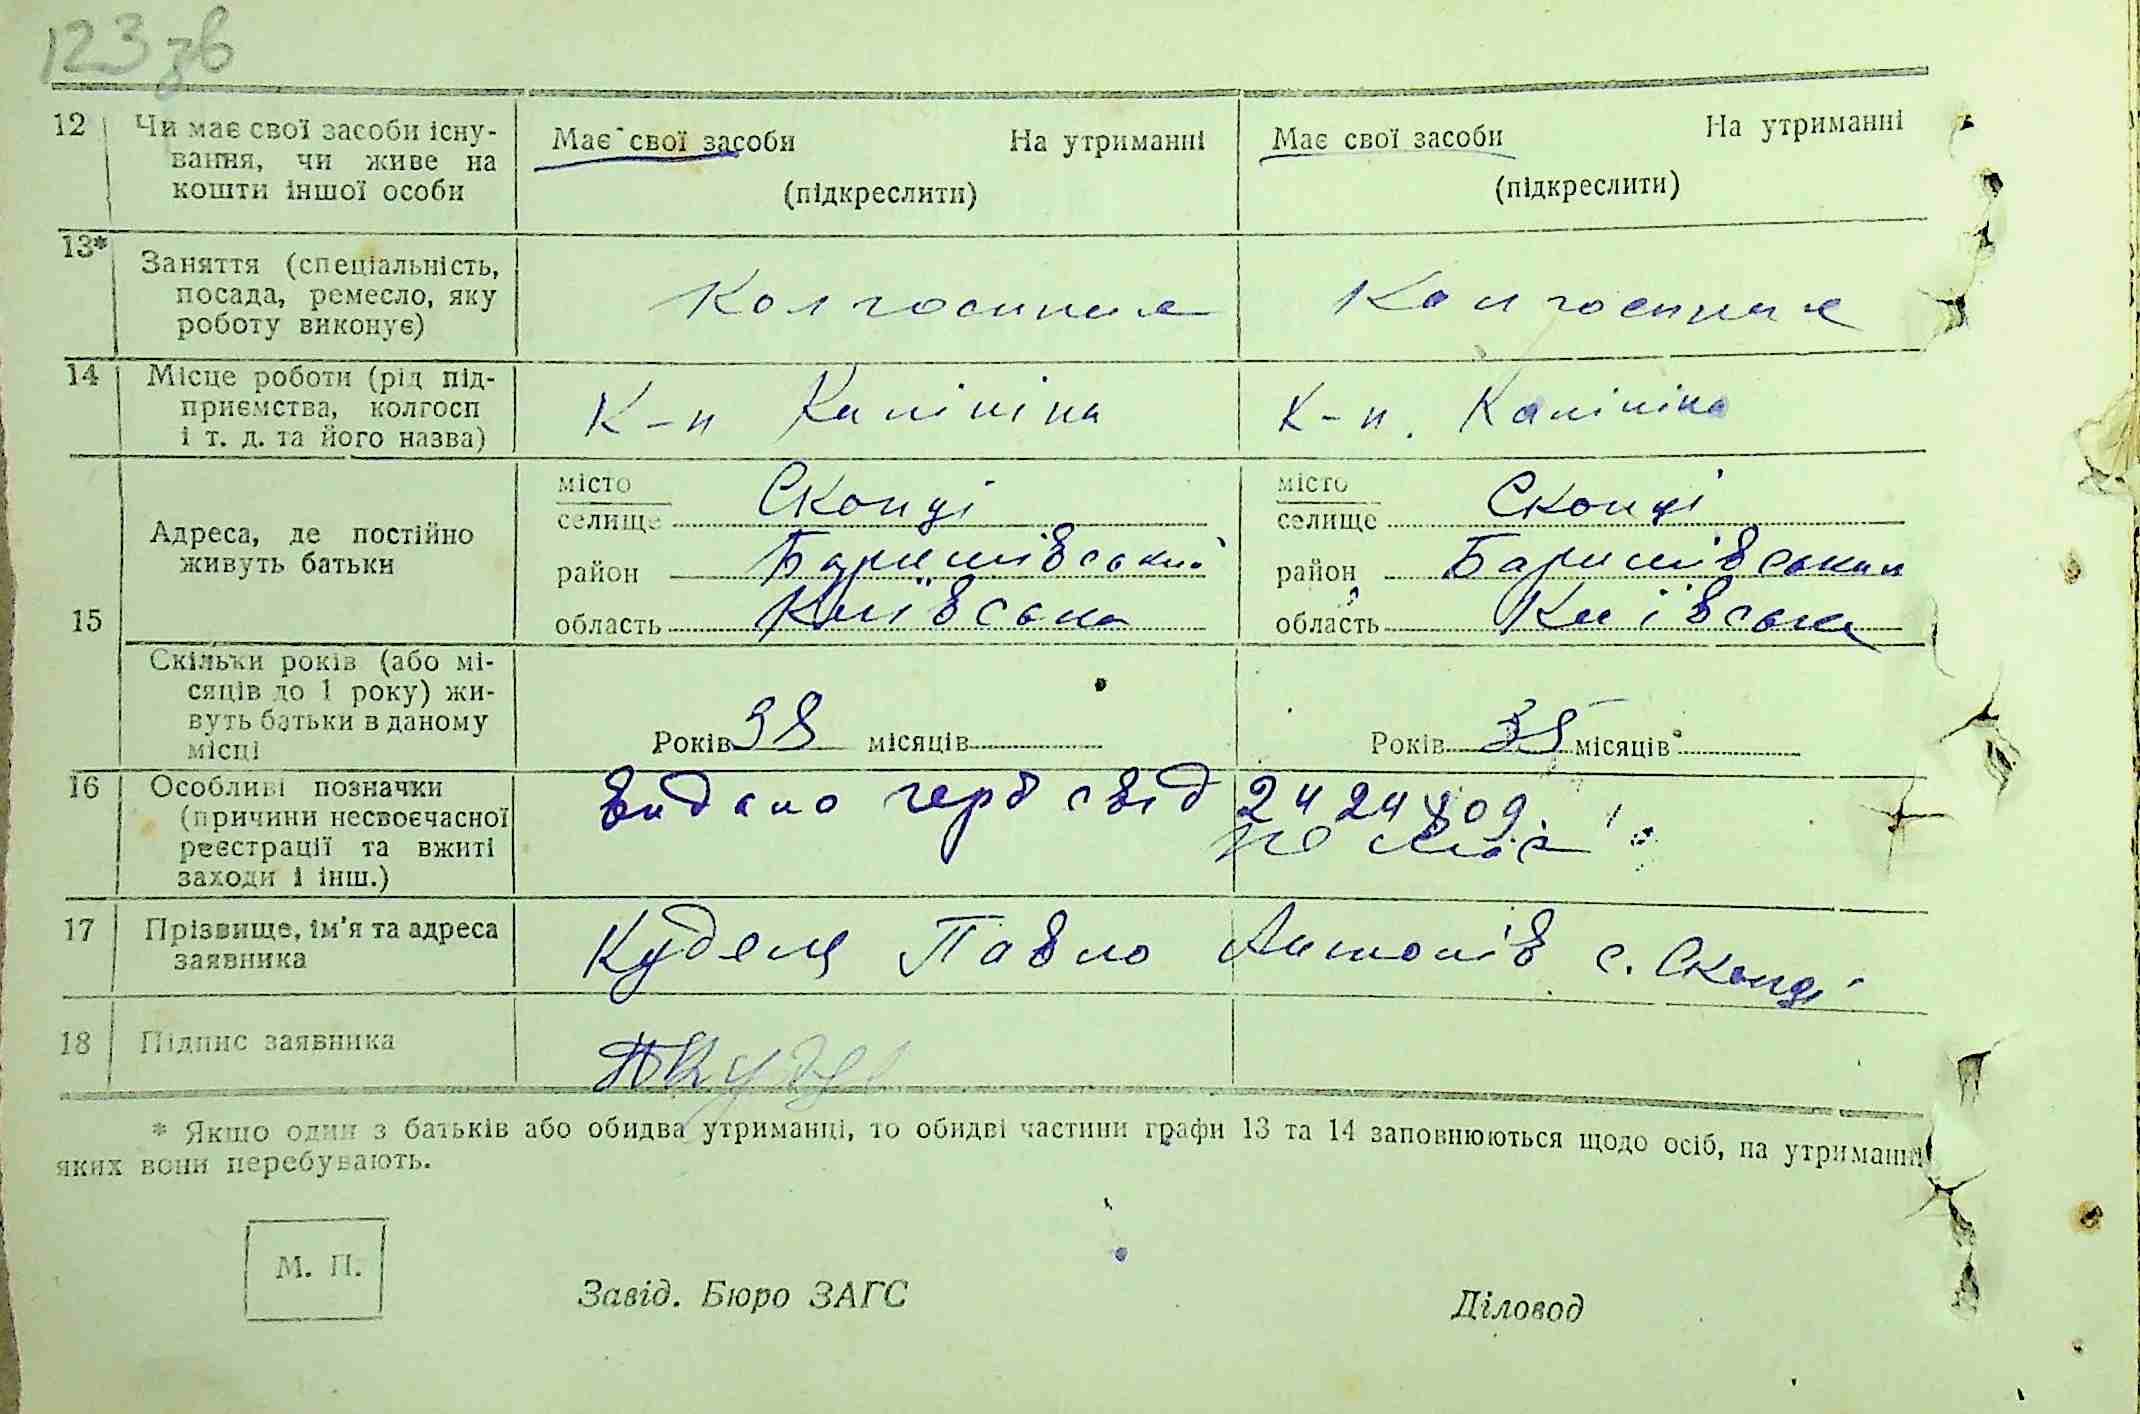 123 зв
12 Чи має свої засоби існу-
вання, чи живе на
кошти іншої особи
Має свої засоби На утриманні
(підкреслити)
Має свої засоби На утриманні
(підкреслити)
13* Заняття (спеціальність,
посада, ремесло, яку
роботу виконує)
Колгоспник
Колгоспник
14 Місце роботи (рід під-
приємства, колгосп
і т. д. та його назва)
К-п Калініна
К-п. Калініна
15 Адреса, де постійно
живуть батьки
місто
селище Скопці
район Баришівський
область Київська
місто
селище Скопці
район Баришівський
область Київська
Скільки років (або мі-
сяців до 1 року) жи-
вуть батьки в даному
місці
Років 38 місяців
Років 35 місяців
16 Особливі позначки
(причини несвоєчасної
реєстрації та вжиті
заходи і інш.)
Видано герб свід
17 Прізвище, ім'я та адреса
заявника
Павло Антонів с. Скопці
18 Підпис заявника
* Якшо один з батьків або обидва утриманці, то обидві частини графи 13 та 14 заповнюються щодо осіб, на утриманні
яких вони перебувають.
М. П.
Завід. Бюро ЗАГС
Діловод